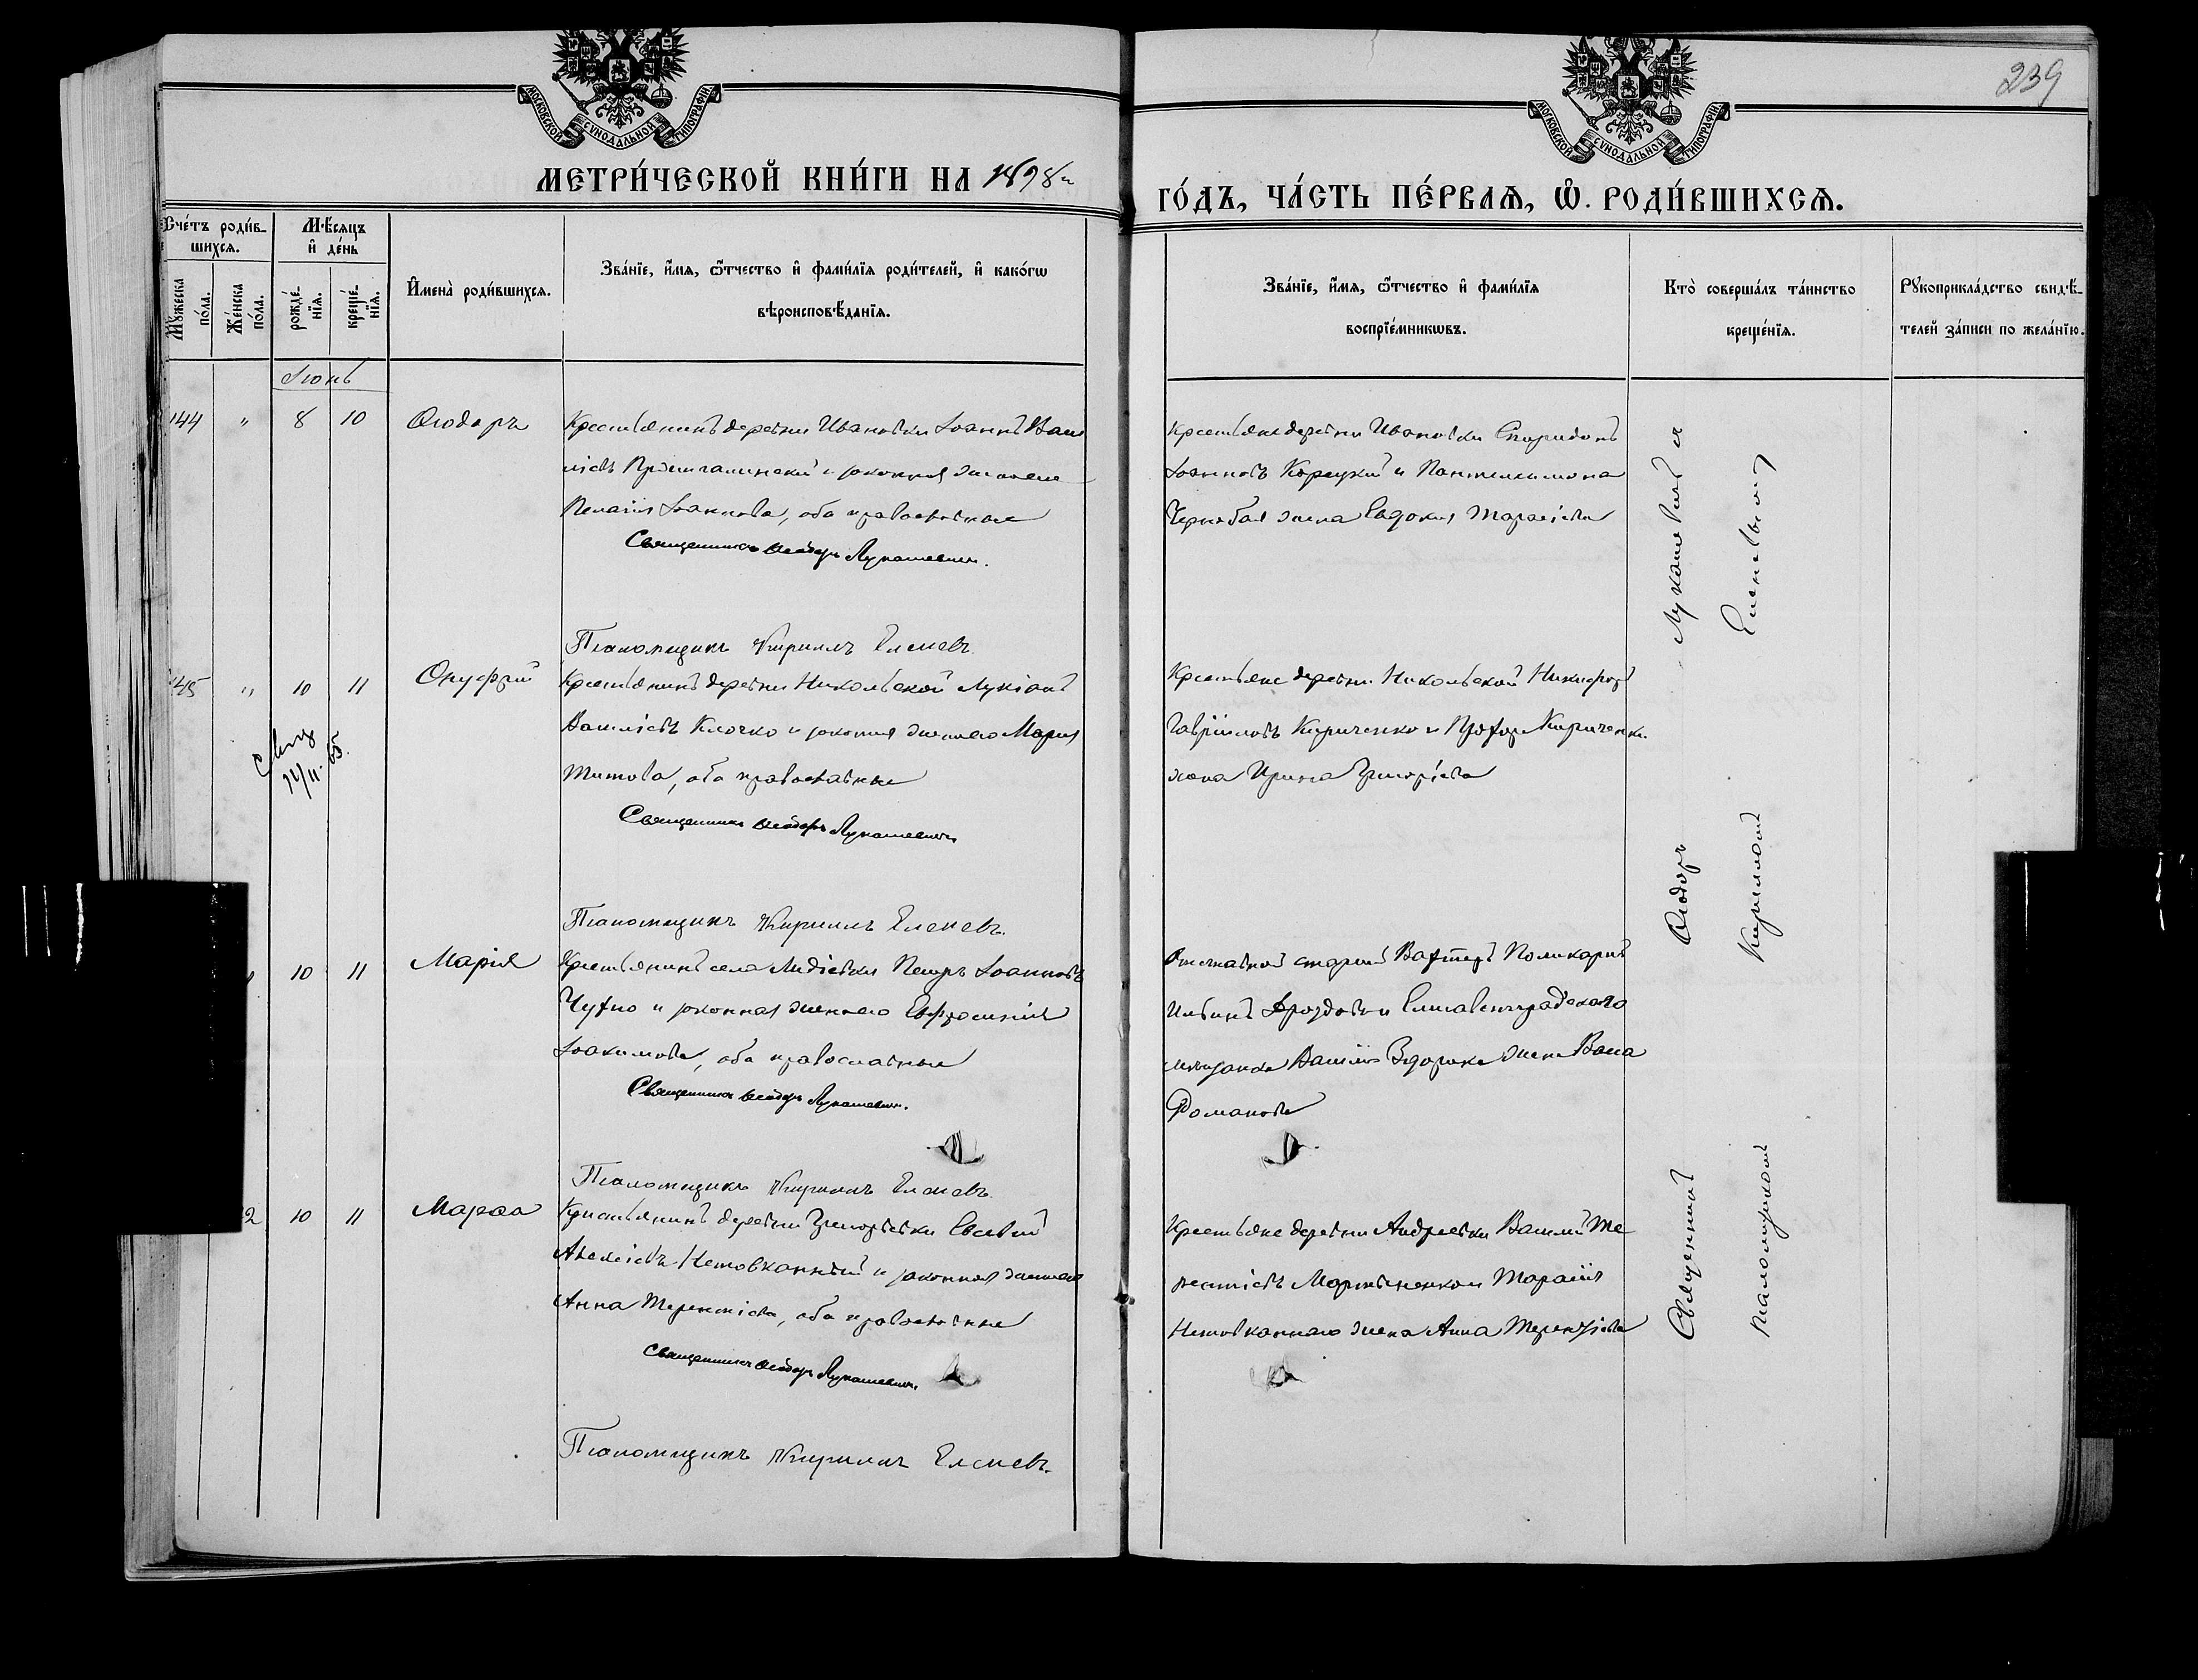 239
МОСКОВСКОЙ СУНОДАЛЬНОЙ ТИПОГРАФІИ
МОСКОВСКОЙ СУНОДАЛЬНОЙ ТИПОГРАФІИ
МЕТРИ́ЧЕСКОЙ КНИ́ГИ НА 1898й
ГО́ДЪ, ЧА́СТЬ ПЕ́РВАѦ, Ѡ҆ РОДИ́ВШИХСѦ.
Сче́тъ роди́в-
шихсѧ.
Мꙋ́жеска по́ла.
Же́нска по́ла.
Мѣ́сѧцъ
и҆ де́нь
рожде́-нїѧ.
креще́-нїѧ.
И҆мена̀ роди́вшихсѧ.
Зва́нїе, и҆́мѧ, ѻ҆́тчество и҆ фами́лїѧ роди́телей, и҆ како́гѡ
вѣроисповѣ́данїѧ.
Зва́нїе, и҆́мѧ, ѻ҆́тчество и҆ фами́лїѧ
воспрїе́мникѡвъ.
Кто̀ соверша́лъ та́инство
креще́нїѧ.
Рꙋкоприкла́дство свидѣ́-
телей за́писи по жела́нїю.
Іюнь
144 " 8 10 Ѳеодоръ
Крестьянинъ деревни Ивановки Іоаннъ Васи
ліевъ и законная жена его
Пелагія Іоаннова, оба православные
Священникъ Ѳеодоръ Лукашевичъ.
Псаломщикъ Кириллъ Елисеевъ.
Крестьяне деревни Ивановки Спиридонъ
Іоанновъ Корецкій и Пантелеимона
жена Евдокія Тарасіева
145 " 10 11 Онуфрій
Крестьянинъ деревни Никольской Лукіанъ
Василіевъ Клочко и законная жена его Марія
Титова, оба православные
Священникъ Ѳеодоръ Лукашевичъ.
Псаломщикъ Кириллъ Елисеевъ.
Крестьяне деревни Никольской Никифоръ
Гавріиловъ Кириченко и Кириченка
жена Ирина Григоріева
10 11 Марія
Крестьянинъ села Лидіевки Петръ Іоанновъ
Чухно и законная жена его Евфросинія
Іоакимова, оба православные
Священникъ Ѳеодоръ Лукашевичъ.
Псаломщикъ Кириллъ Елисеевъ.
старшій Вахтеръ Поликарпъ
Ильинъ Дроздовъ и Елисаветградскаго
мѣщанина Василія жена Васса
Романова
2 10 11 Марѳа
Крестьянинъ деревни Григорьевки Евсевій
Алексіевъ Нетовканный и законная жена его
Анна Терентіева, оба православные
Священникъ Ѳеодоръ Лукашевичъ.
Псаломщикъ Кириллъ Елисеевъ.
Крестьяне деревни Андреевки Василій Те
рентіевъ Мартыненко и Тарасія
Нетовканнаго жена Анна Терентіева
Священникъ Ѳеодоръ Лукашевичъ съ
псаломщикомъ Кирилломъ Елисеевымъ